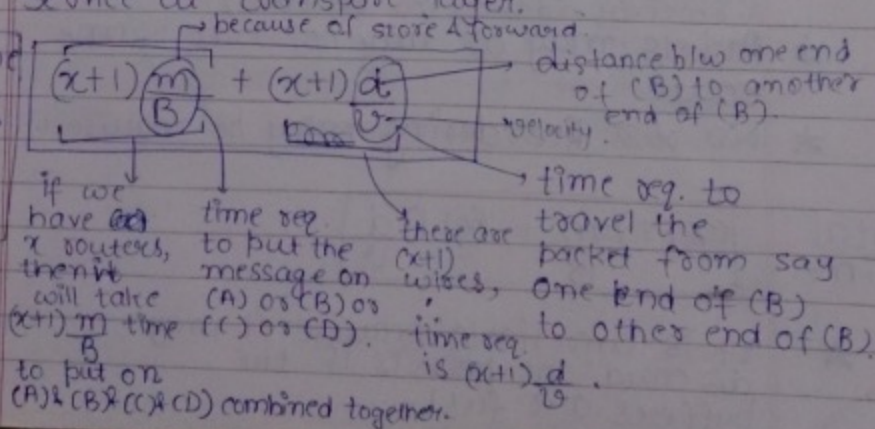 because of store & forward.
(x+1) m/B + (x+1) d/v
distance b/w one end
of (B) to another
end of (B).
velocity.
if we
have
x routers,
then it
will take
(x+1) m/B time
to put on
(A) & (B) & (C) & (D) combined together.
time req.
to put the
message on
(A) or (B) or
(C) or (D).
there are
(x+1)
wires,
time req.
is (x+1) d/v .
time req. to
travel the
packet from say
one end of (B)
to other end of (B)